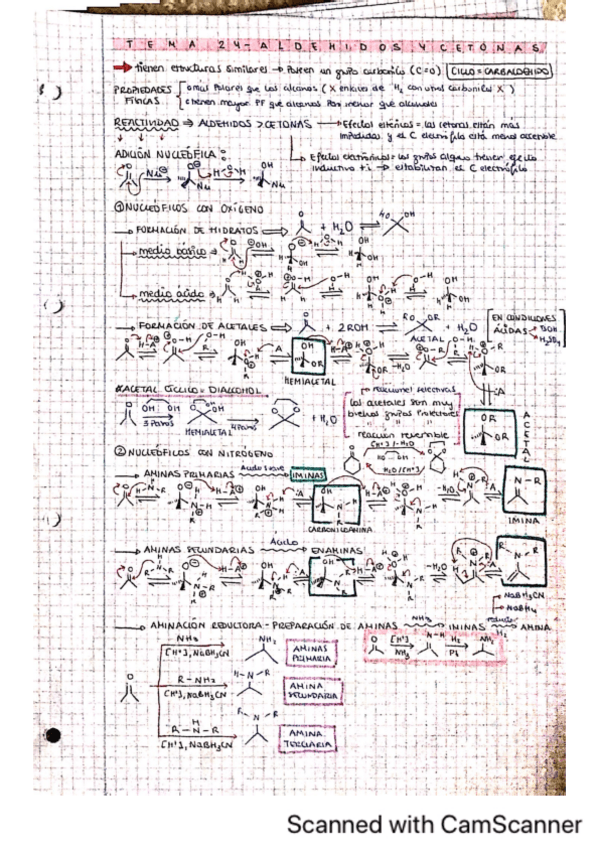 TEMA 24-ALDEHIDOS Y CETONAS
→ tienen estructuras similares → Poseen un grupo carbonilo (C=O) CICLO = CARBALDEHIDO
PROPIEDADES FÍSICAS
o más Polares que los alcanos (X enlaces de H, con otros carbonilos X)
o tienen mayor PF que alcanos Pero menor que alcoholes
REACTIVIDAD ⇒ ALDEHIDOS > CETONAS → Efectos estéricos = las cetonas están más
impedidas y el C electrófilo está menos accesible
→ Efectos electrónicos = los grupos alquilo tienen efecto
inductivo +i → estabilizan el C electrófilo
ADICIÓN NUCLEÓFILA:
① NUCLEÓFILOS CON OXÍGENO
→ FORMACIÓN DE HIDRATOS ⇒ + H2O ⇌
→ medio básico →
→ medio ácido →
→ FORMACIÓN DE ACETALES ⇒ + 2ROH ⇌ ACETAL + H2O
EN CONDICIONES ÁCIDAS
H2SO4
HEMIACETAL
*ACETAL CÍCLICO = DIALCOHOL
3 Pasos
HEMIACETAL
4 Pasos
+ H2O
reacciones selectivas
los acetales son muy
buenos grupos Protectores
reacción reversible
[H+]/-H2O
H2O/[H+]
ACETAL
② NUCLEÓFILOS CON NITRÓGENO
→ AMINAS PRIMARIAS Ácido suave IMINAS
CARBINOLAMINA
-H2O
IMINA
→ AMINAS SECUNDARIAS Ácido ENAMINAS
-H2O
NaBH3CN
NaBH4
→ AMINACIÓN REDUCTORA - PREPARACIÓN DE AMINAS NH3 IMINAS reductor H2 AMINA
NH3
[H+], NaBH3CN
NH2
AMINAS PRIMARIA
[H+]
NH3
N-H
H2
Pt
NH2
R-NH2
[H+], NaBH3CN
H-N-R
AMINA SECUNDARIA
R-N-R
H
[H+], NaBH3CN
R N R
AMINA TERCIARIA
Scanned with CamScanner